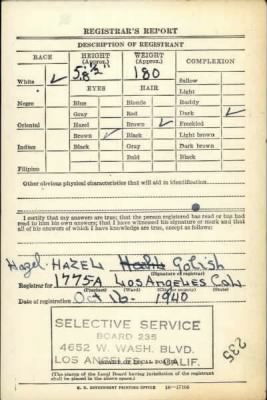 REGISTRAR'S REPORT
DESCRIPTION OF REGISTRANT
RACE HEIGHT (Approx.) WEIGHT (Approx.) COMPLEXION
5.8½" 180
White ✓ Sallow
EYES HAIR Light
Negro Blue Blonde Ruddy
Gray Red Dark ✓
Oriental Hazel Brown ✓ Freckled
Brown ✓ Black Light brown
Indian Black Gray Dark brown
Bald Black
Filipino
Other obvious physical characteristics that will aid in identification
I certify that my answers are true; that the person registered has read or has had
read to him his own answers; that I have witnessed his signature or mark and that
all of his answers of which I have knowledge are true, except as follows:
Hazel HAZEL Golish
(Signature of registrar)
Registrar for 1775A Los Angeles Cal.
(Precinct) (Ward) (City or county) (State)
Date of registration Oct 16 - 1940
SELECTIVE SERVICE
BOARD 235
4652 W. WASH. BLVD.
LOS ANGELES CALIF.
235
(The stamp of the Local Board having jurisdiction of the registrant
shall be placed in the above space.)
U. S. GOVERNMENT PRINTING OFFICE 16-17105